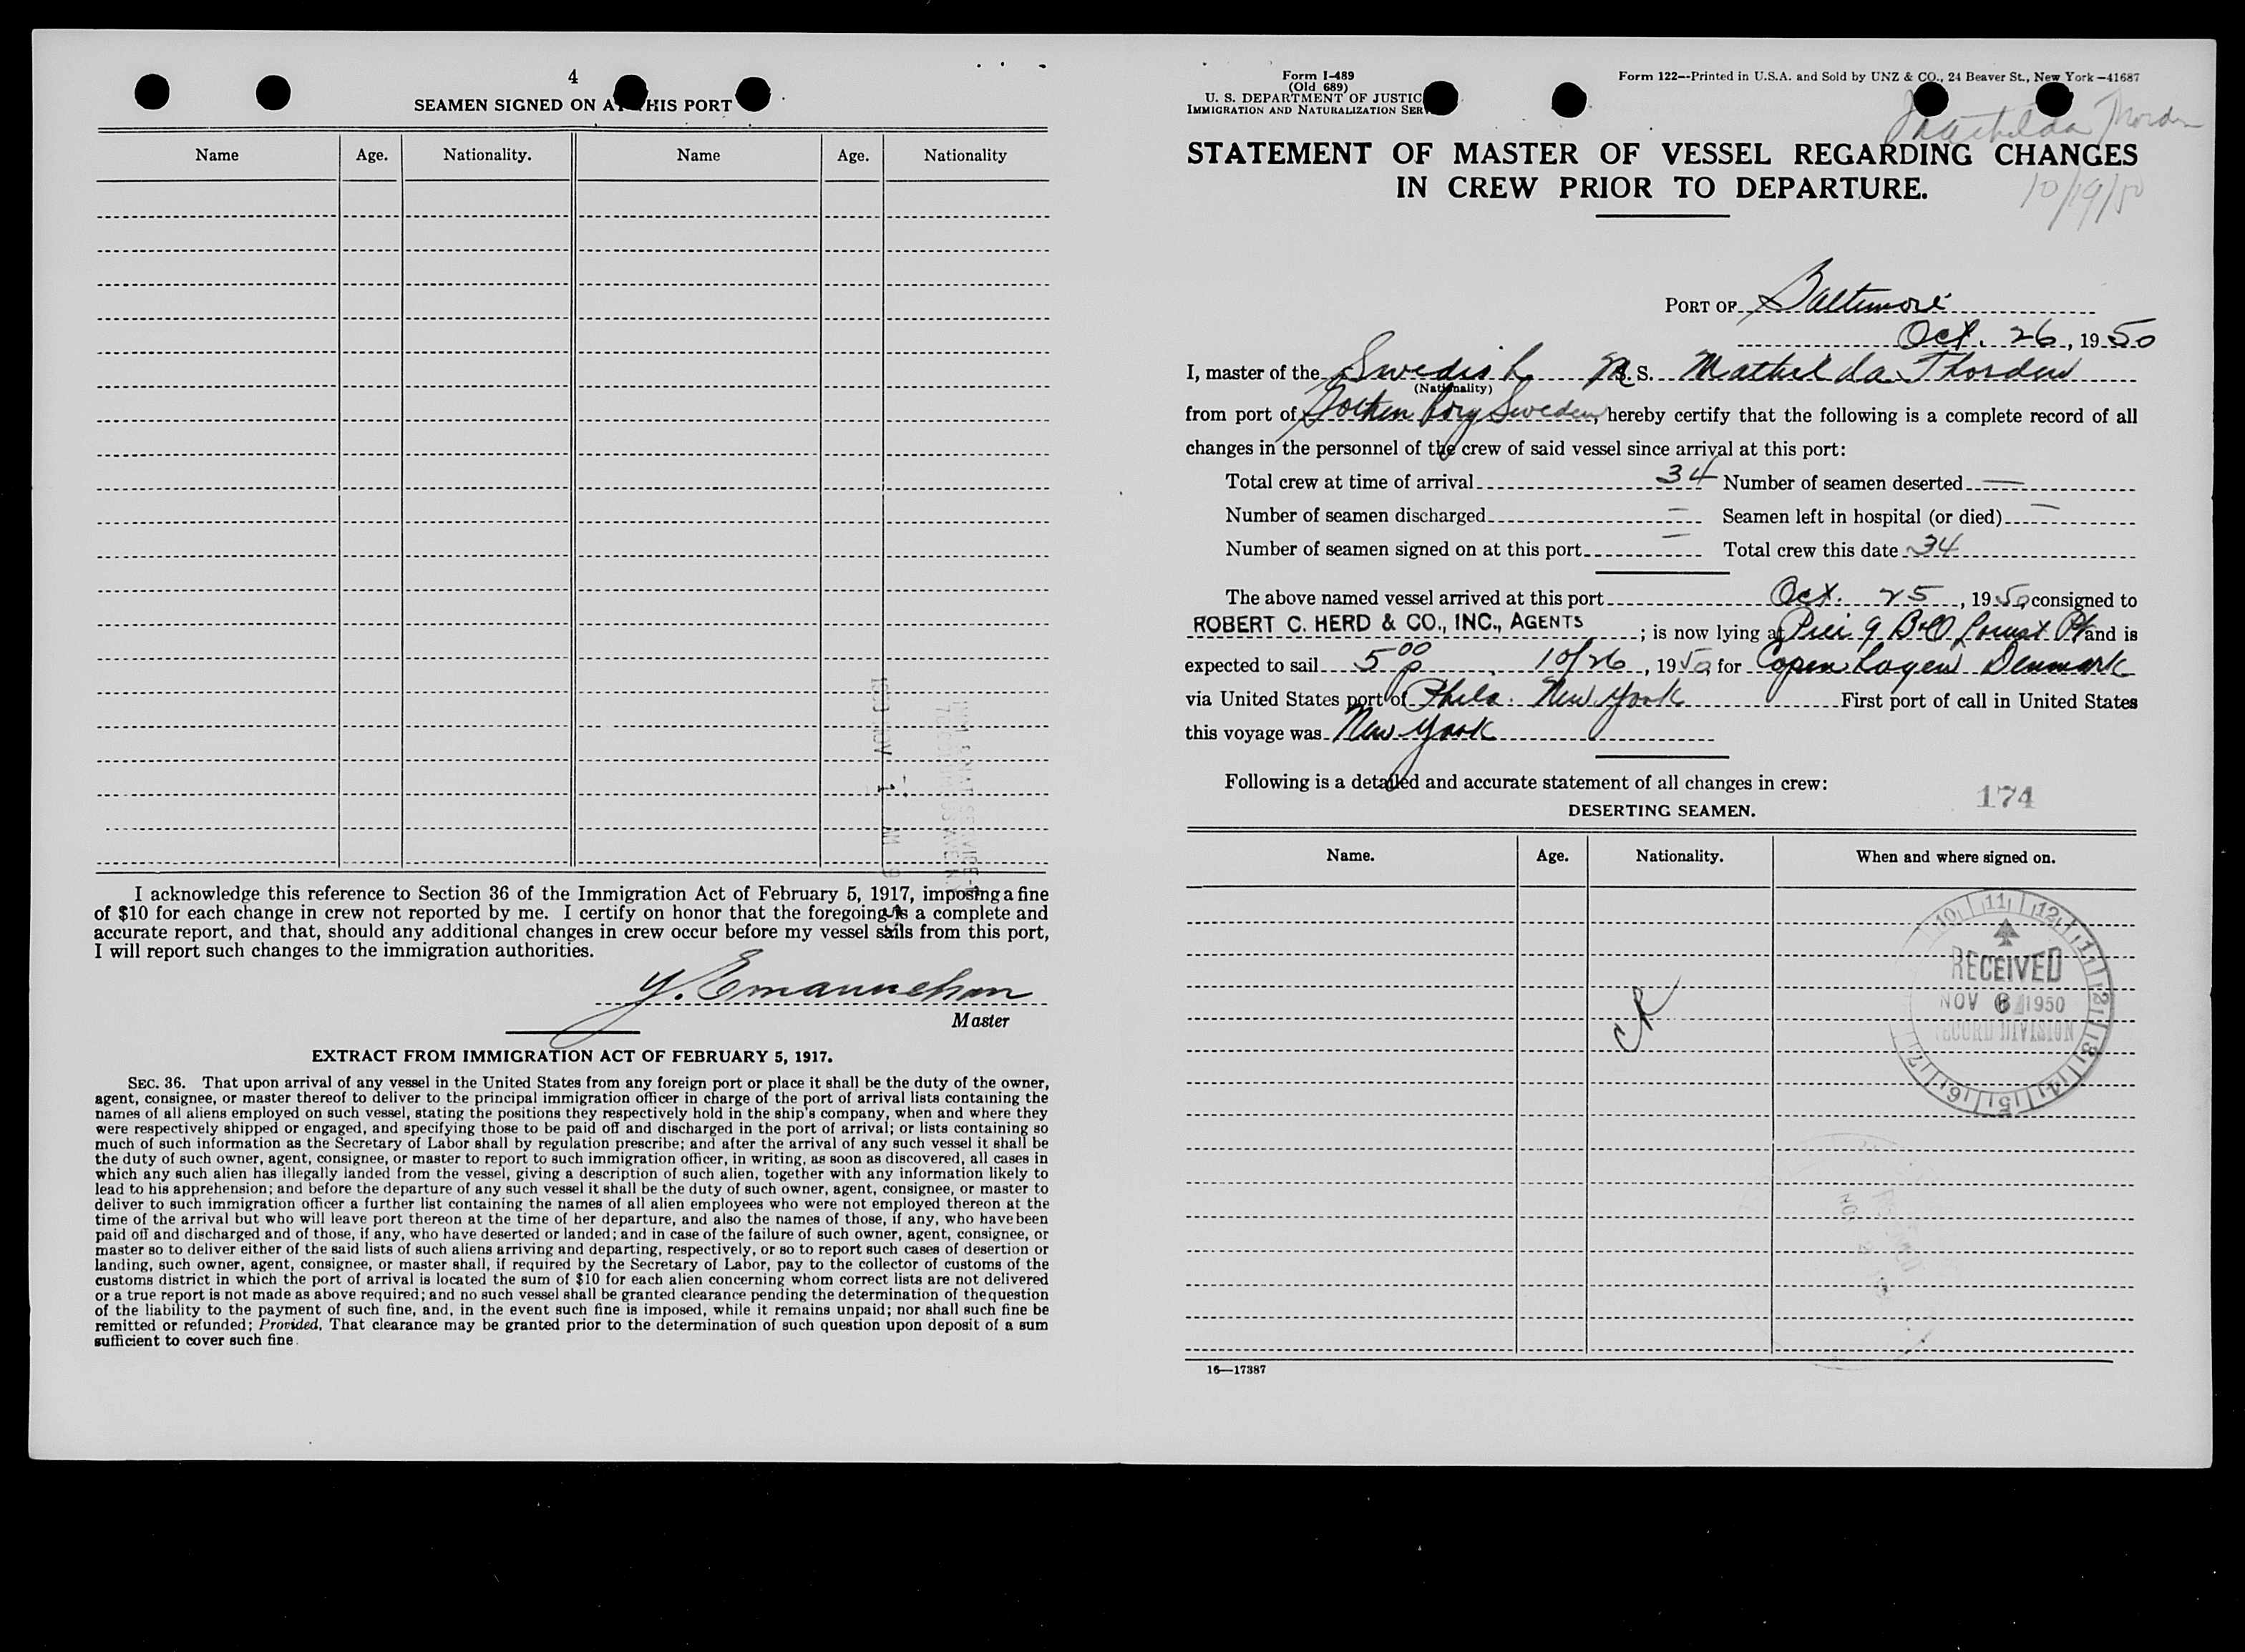 4
SEAMEN SIGNED ON AT THIS PORT
Name Age. Nationality. Name Age. Nationality
I acknowledge this reference to Section 36 of the Immigration Act of February 5, 1917, imposing a fine
of $10 for each change in crew not reported by me. I certify on honor that the foregoing is a complete and
accurate report, and that, should any additional changes in crew occur before my vessel sails from this port,
I will report such changes to the immigration authorities.
Y. Emanuelson
Master
EXTRACT FROM IMMIGRATION ACT OF FEBRUARY 5, 1917.
SEC. 36. That upon arrival of any vessel in the United States from any foreign port or place it shall be the duty of the owner,
agent, consignee, or master thereof to deliver to the principal immigration officer in charge of the port of arrival lists containing the
names of all aliens employed on such vessel, stating the positions they respectively hold in the ship's company, when and where they
were respectively shipped or engaged, and specifying those to be paid off and discharged in the port of arrival; or lists containing so
much of such information as the Secretary of Labor shall by regulation prescribe; and after the arrival of any such vessel it shall be
the duty of such owner, agent, consignee, or master to report to such immigration officer, in writing, as soon as discovered, all cases in
which any such alien has illegally landed from the vessel, giving a description of such alien, together with any information likely to
lead to his apprehension; and before the departure of any such vessel it shall be the duty of such owner, agent, consignee, or master to
deliver to such immigration officer a further list containing the names of all alien employees who were not employed thereon at the
time of the arrival but who will leave port thereon at the time of her departure, and also the names of those, if any, who have been
paid off and discharged and of those, if any, who have deserted or landed; and in case of the failure of such owner, agent, consignee, or
master so to deliver either of the said lists of such aliens arriving and departing, respectively, or so to report such cases of desertion or
landing, such owner, agent, consignee, or master shall, if required by the Secretary of Labor, pay to the collector of customs of the
customs district in which the port of arrival is located the sum of $10 for each alien concerning whom correct lists are not delivered
or a true report is not made as above required; and no such vessel shall be granted clearance pending the determination of the question
of the liability to the payment of such fine, and, in the event such fine is imposed, while it remains unpaid; nor shall such fine be
remitted or refunded; Provided, That clearance may be granted prior to the determination of such question upon deposit of a sum
sufficient to cover such fine.
Form I-489
(Old 689)
U. S. DEPARTMENT OF JUSTIC
IMMIGRATION AND NATURALIZATION SER
Form 122--Printed in U.S.A. and Sold by UNZ & CO., 24 Beaver St., New York—41687
Mathilda Thorden
STATEMENT OF MASTER OF VESSEL REGARDING CHANGES
IN CREW PRIOR TO DEPARTURE.
10/19/50
PORT OF Baltimore
Oct. 26, 1950
I, master of the Swedish M.S. Mathilda Thorden
(Nationality)
from port of Gothenborg Sweden, hereby certify that the following is a complete record of all
changes in the personnel of the crew of said vessel since arrival at this port:
Total crew at time of arrival 34 Number of seamen deserted —
Number of seamen discharged — Seamen left in hospital (or died) —
Number of seamen signed on at this port — Total crew this date 34
The above named vessel arrived at this port Oct. 25, 1950, consigned to
ROBERT C. HERD & CO., INC., AGENTS; is now lying at Pier 9 B&O Locust Pt and is
expected to sail 5 00 p, 10/26, 1950, for Copenhagen Denmark
via United States port of Phila. New York First port of call in United States
this voyage was New York
Following is a detailed and accurate statement of all changes in crew:
174
DESERTING SEAMEN.
Name. Age. Nationality. When and where signed on.
10 11 12 1 2 3 4 5 6 7
RECEIVED
NOV 6 1950
RECORD DIVISION
CR
16—17387